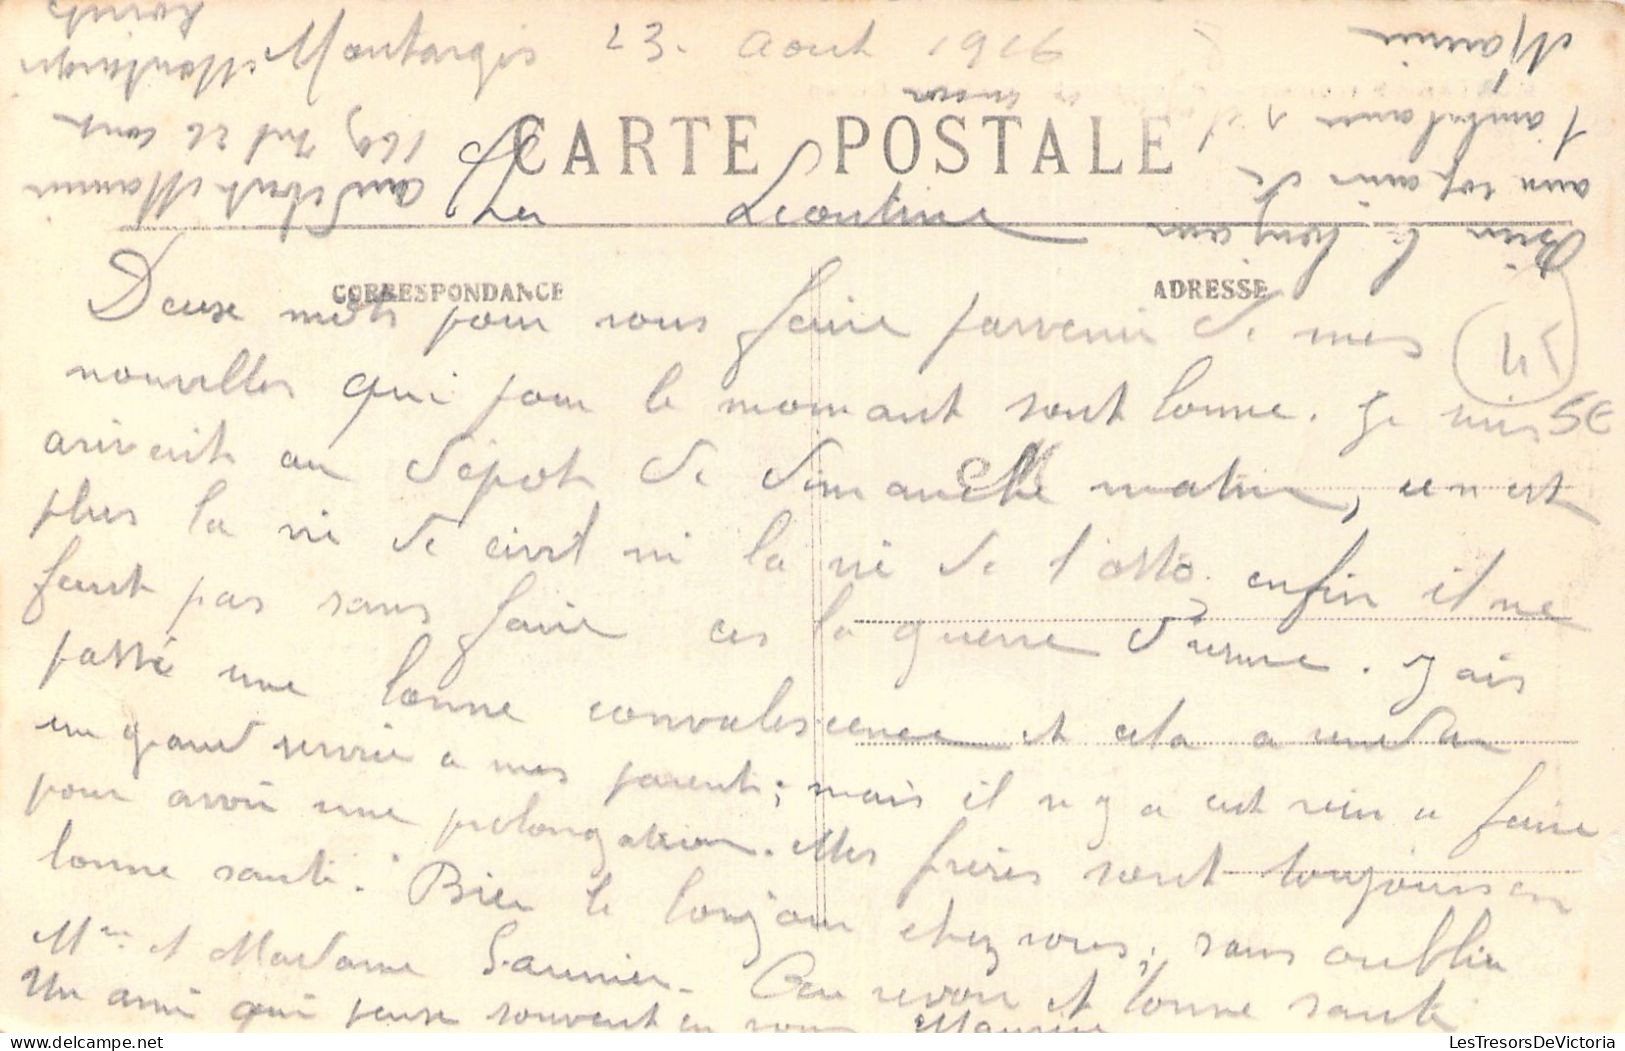 Montargis 23. Aout 1916
CARTE POSTALE
Leontine
CORRESPONDANCE
ADRESSE
Deuse mots pour vous faire parvenir de mes
nouvelles qui pour le momant sont bonne. Je suis
arivait au dépot de dimanche matin, ce n est
plus la vie de civil ni la vie de l'osto, enfin il ne
faut pas sans faire ces la guerre d'usure. J ais
passé une bonne convalescence et cela a rendu
un grand servvie a mes parents; mais il n y a eut rien a faire
pour avoir une prolongation. Mes frères sont toujours en
bonne santé. Bien le bonjour chez vous, sans oublier
Mr et Madame Saunier. Au revoir et bonne santé
Un ami qui pense souvent en vous Maurice
Bien le bonjour
aux copains de
l'ambulance
Maurice
45
SE
169 Inf 26 comp
Montargis
Loirets
LesTresorsDeVictoria